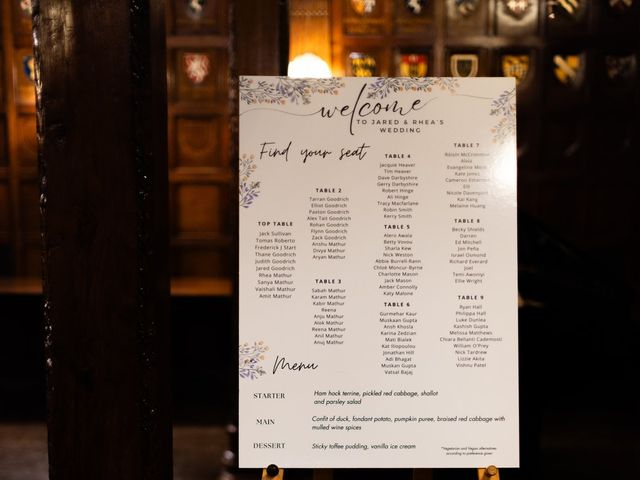 welcome
TO JARED & RHEA'S
WEDDING
Find your seat
TOP TABLE
Jack Sullivan
Tomas Roberto
Frederick J Start
Thane Goodrich
Judith Goodrich
Jared Goodrich
Rhea Mathur
Sanya Mathur
Vaishali Mathur
Amit Mathur
TABLE 2
Tarran Goodrich
Elliot Goodrich
Paxton Goodrich
Alex Tait Goodrich
Rohan Goodrich
Flynn Goodrich
Zack Goodrich
Anshu Mathur
Divya Mathur
Aryan Mathur
TABLE 3
Sabah Mathur
Karam Mathur
Kabir Mathur
Reena
Anju Mathur
Alok Mathur
Reena Mathur
Anil Mathur
Anuj Mathur
TABLE 4
Jacquie Heaver
Tim Heaver
Dave Darbyshire
Gerry Darbyshire
Robert Hinge
Ali Hinge
Tracy Macfarlane
Robin Smith
Kerry Smith
TABLE 5
Alero Awala
Betty Vovou
Sharla Kew
Nick Weston
Abbie Burrell-Rann
Chloë Moncur-Byrne
Charlotte Mason
Jack Mason
Amber Connolly
Katy Malone
TABLE 6
Gurmehar Kaur
Muskaan Gupta
Ansh Khosla
Karina Zedzian
Mati Bialek
Kat Iliopoulou
Jonathan Hill
Adi Bhagat
Muskan Gupta
Vatsal Bajaj
TABLE 7
Róisín McCrimmon
Alvin
Evangeline
Kate Jones
Cameron
Elli
Nicole Davenport
Kai Kang
Melaine Huang
TABLE 8
Becky Shields
Darren
Ed Mitchell
Jon Peña
Israel Osmond
Richard Everard
Joel
Temi Awoniyi
Ellie Wright
TABLE 9
Ryan Hall
Philippa Hall
Luke Dunlea
Kashish Gupta
Melissa Matthews
Chiara Bellanti Cademosti
William O'Prey
Nick Tardrew
Lizzie Akita
Vishnu Patel
Menu
STARTER
Ham hock terrine, pickled red cabbage, shallot
and parsley salad
MAIN
Confit of duck, fondant potato, pumpkin puree, braised red cabbage with
mulled wine spices
DESSERT
Sticky toffee pudding, vanilla ice cream
*Vegetarian and Vegan alternatives
according to preference given